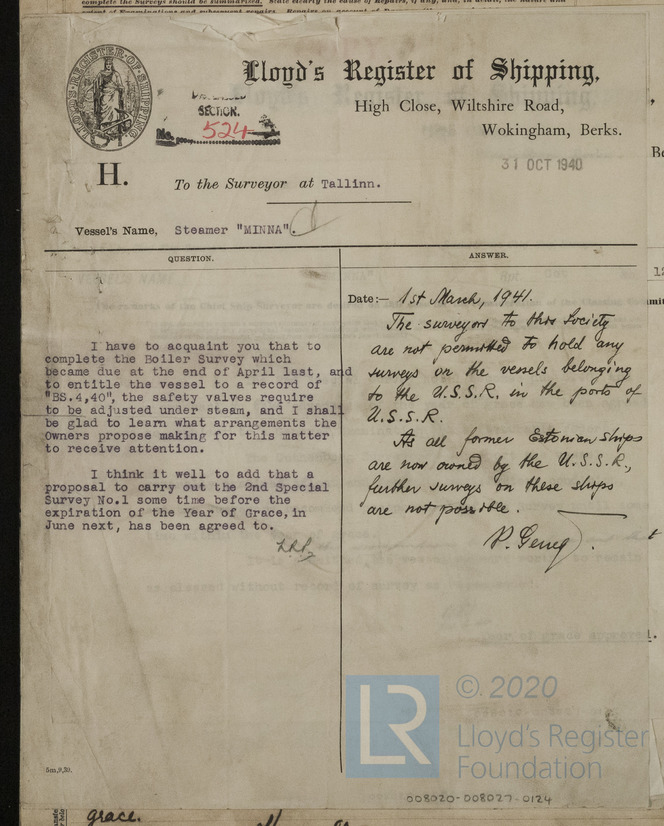 complete the Surveys should be summarised. State clearly the cause of Repairs, if any, and, in detail, the nature and
extent of Examinations and subsequent repairs.
LLOYD'S REGISTER OF SHIPPING
Lloyd's Register of Shipping,
High Close, Wiltshire Road,
Wokingham, Berks.
SECTION.
No. 524
31 OCT 1940
H.
To the Surveyor at Tallinn.
Vessel's Name, Steamer "MINNA".
QUESTION.
I have to acquaint you that to
complete the Boiler Survey which
became due at the end of April last, and
to entitle the vessel to a record of
"BS.4,40", the safety valves require
to be adjusted under steam, and I shall
be glad to learn what arrangements the
Owners propose making for this matter
to receive attention.
I think it well to add that a
proposal to carry out the 2nd Special
Survey No.1 some time before the
expiration of the Year of Grace, in
June next, has been agreed to.
ANSWER.
Date:- 1st March, 1941.
The surveyors to this Society
are not permitted to hold any
surveys on the vessels belonging
to the U.S.S.R. in the ports of
U.S.S.R.
As all former Estonian ships
are now owned by the U.S.S.R.,
further surveys on these ships
are not possible.
5m,9,39.
LR
© 2020
Lloyd's Register
Foundation
008020-008027-0124
grace.